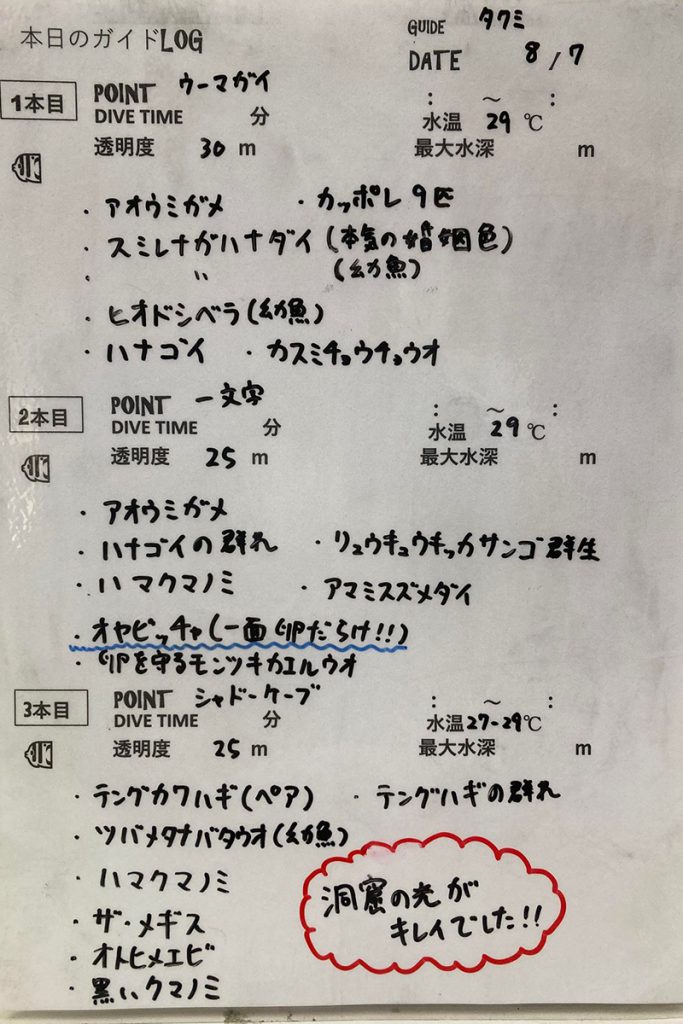 本日のガイドLOG
GUIDE タクミ
DATE 8/7
1本目 POINT ウーマガイ
DIVE TIME 分 : ～ :
水温 29℃
透明度 30 m 最大水深 m
・アオウミガメ ・カッポレ 9匹
・スミレナガハナダイ(本気の婚姻色)
・ 〃 (幼魚)
・ヒオドシベラ(幼魚)
・ハナゴイ ・カスミチョウチョウオ
2本目 POINT 一文字
DIVE TIME 分 : ～ :
水温 29℃
透明度 25 m 最大水深 m
・アオウミガメ
・ハナゴイの群れ ・リュウキュウキッカサンゴ群生
・ハマクマノミ ・アマミスズメダイ
・オヤビッチャ(一面卵だらけ!!)
・卵を守るモンツキカエルウオ
3本目 POINT シャドーケーブ
DIVE TIME 分 : ～ :
水温27-29℃
透明度 25 m 最大水深 m
・テングカワハギ(ペア) ・テングハギの群れ
・ツバメタナバタウオ(幼魚)
・ハマクマノミ
・ザ・メギス
・オトヒメエビ
・黒いクマノミ
洞窟の光が
キレイでした!!